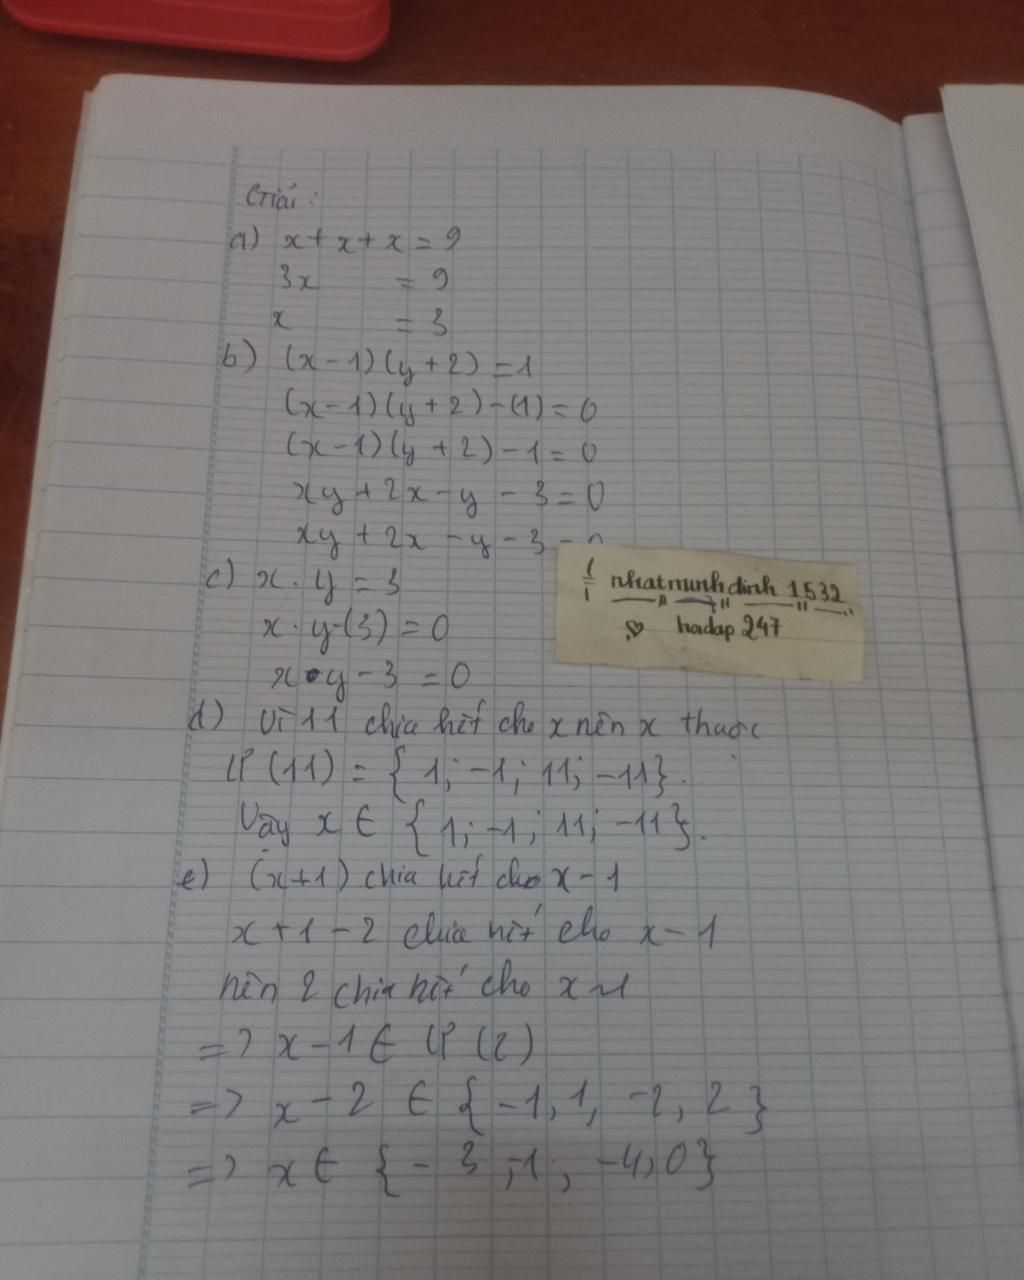 Giải:
a) x + x + x = 9
3x = 9
x = 3
b) (x - 1)(y + 2) = 1
(x - 1)(y + 2) - (1) = 0
(x - 1)(y + 2) - 1 = 0
xy + 2x - y - 3 = 0
xy + 2x - y - 3 = 0
c) x . y = 3
x . y - (3) = 0
x . y - 3 = 0
nhatminhdinh 1532
hoidap 247
d) Vì 11 chia hết cho x nên x thuộc
Ư (11) = { 1; -1; 11; -11}.
Vậy x ∈ { 1; -1; 11; -11}.
e) (x + 1) chia hết cho x - 1
x + 1 - 2 chia hết cho x - 1
nên 2 chia hết cho x - 1
=> x - 1 ∈ Ư (2)
=> x - 2 ∈ { -1, 1, -2, 2 }
=> x ∈ { - 3 ; -1 ; -4, 0}